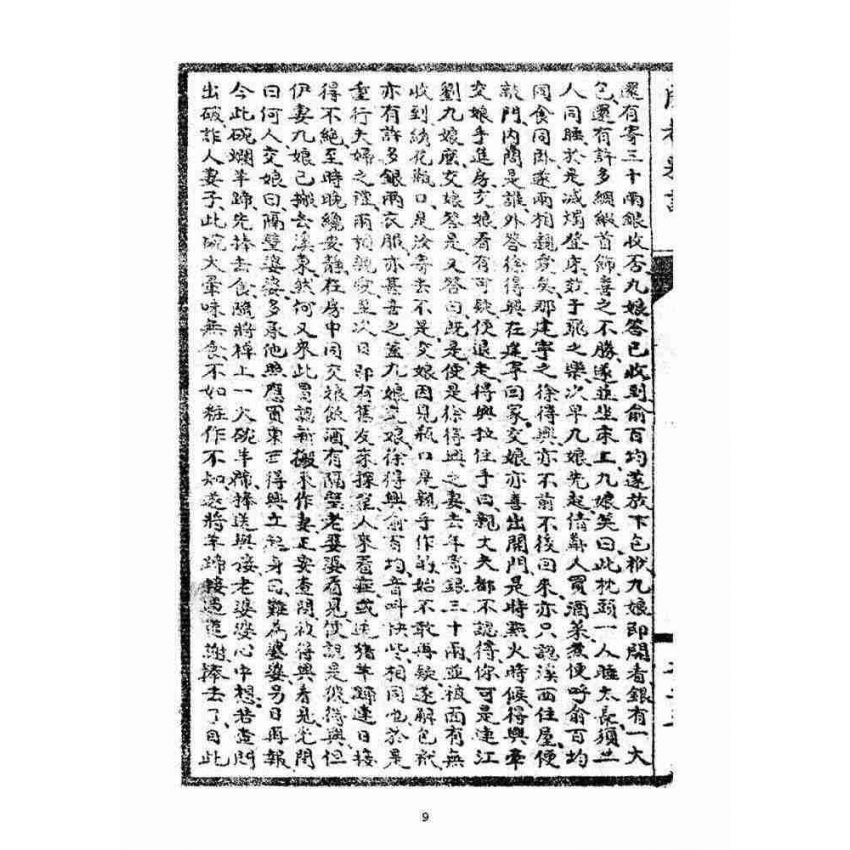 還有寄三十兩銀收否九娘答已收到俞百均遂放下包袱九娘即開看銀有一大
包還有許多綢緞首飾喜之不勝遂並坐床上九娘笑曰此枕頭一人睡太長須二
人同睡於是滅燭登床効于飛之樂次早九娘先起倩鄰人買酒菜煮便呼俞百均
同食同臥遂兩相親愛矣那建寧之徐得興亦不前不後回來亦只認溪西住屋便
敲門內問是誰外答徐得興在建寧回家交娘亦喜出開門是時點火時候得興牽
交娘手進房交娘看有可疑便退走得興拉住手曰親丈夫都不認得你可是連江
劉九娘麼交娘答是又答曰既是便是徐得興之妻去年寄銀三十兩並被面有無
收到綉花瓶口是汝寄去不是交娘因見瓶口是親手作的始不敢再疑遂解包袱
亦有許多銀兩衣服亦甚喜之蓋九娘交娘徐得興俞百均音叫快些相同也於是
重行夫婦之禮兩相親愛至次日即有舊友來探羣人來看症或送猪羊蹄連日接
得不絕至時晚纔安靜在房中同交娘飲酒有隔壁老婆婆看見便説是彼得興但
伊妻九娘已搬去溪東然何又來此冒認新搬來作妻正要查問被得興看見先問
曰何人交娘曰隔壁婆婆多承他照應買東西得興立起身曰難為婆婆另日再報
今此碗爛羊蹄先捧去食隨將棹上一大碗羊蹄捧送與接老婆婆心中想若查問
出破詐人妻子此碗大葷味無食不如粧作不知遂將羊蹄接過道謝捧去了自此
9